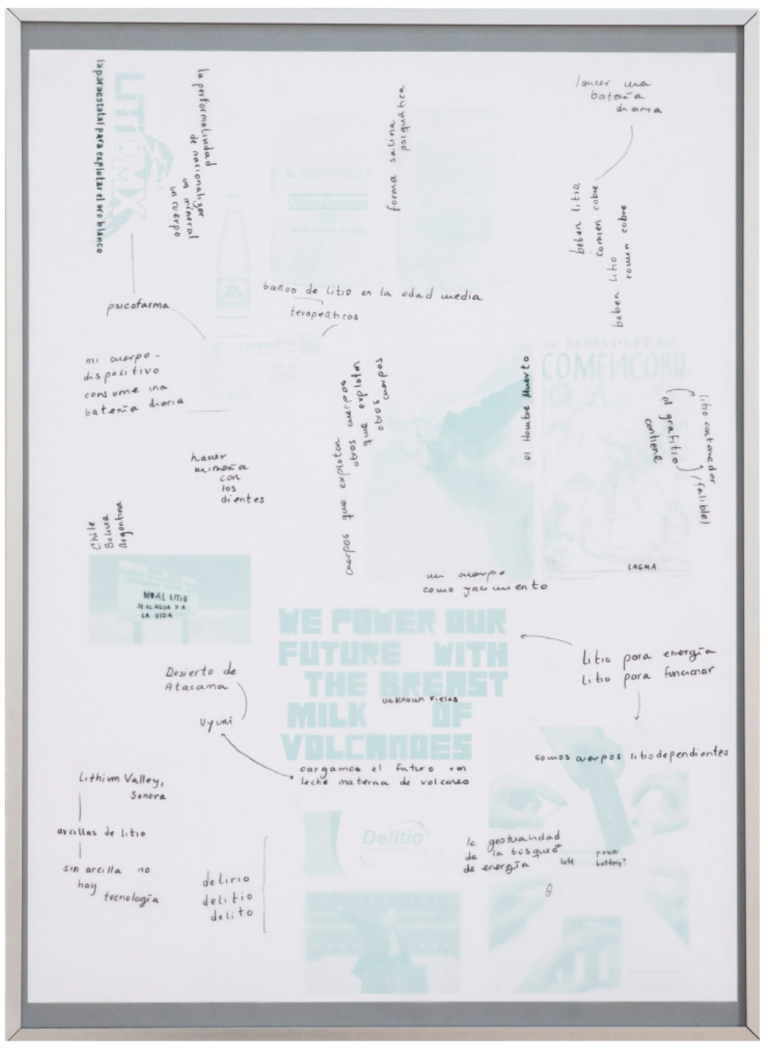 LITIOMX
la paraestatal para explotar el oro blanco
la performatividad
de nacionalizar
un mineral
un cuerpo
forma salina
psiquiátrica
lamer una
batería
diaria
beben litio
comen cobre
beben litio
comen cobre
psicofarma
baños de litio en la edad media
terapeúticos
CARBOLIT
mi cuerpo-
dispositivo
consume una
batería diaria
cuerpos que explotan
otros cuerpos
que explotan
otros cuerpos
el Hombre Muerto
BEBENLITIO
COMENCOBRE
litio contenedor
el grafito
contiene
(falible)
hacer
minería
con
los
dientes
Chile
Bolivia
Argentina
NO AL LITIO
SI AL AGUA Y A
LA VIDA
LAGMA
un cuerpo
como yacimiento
WE POWER OUR
FUTURE WITH
THE BREAST
MILK OF
VOLCANOES
UNKNOWN FIELDS
litio para energía
litio para funcionar
Desierto de
Atacama
Uyuni
cargamos el futuro con
leche materna de volcanes
somos cuerpos litiodependientes
Lithium Valley,
Sonora
arcillas de litio
sin arcilla no
hay
tecnología
Delitio
delirio
delitio
delito
la gestualidad
de la búsqueda
de energía
low
power
battery?